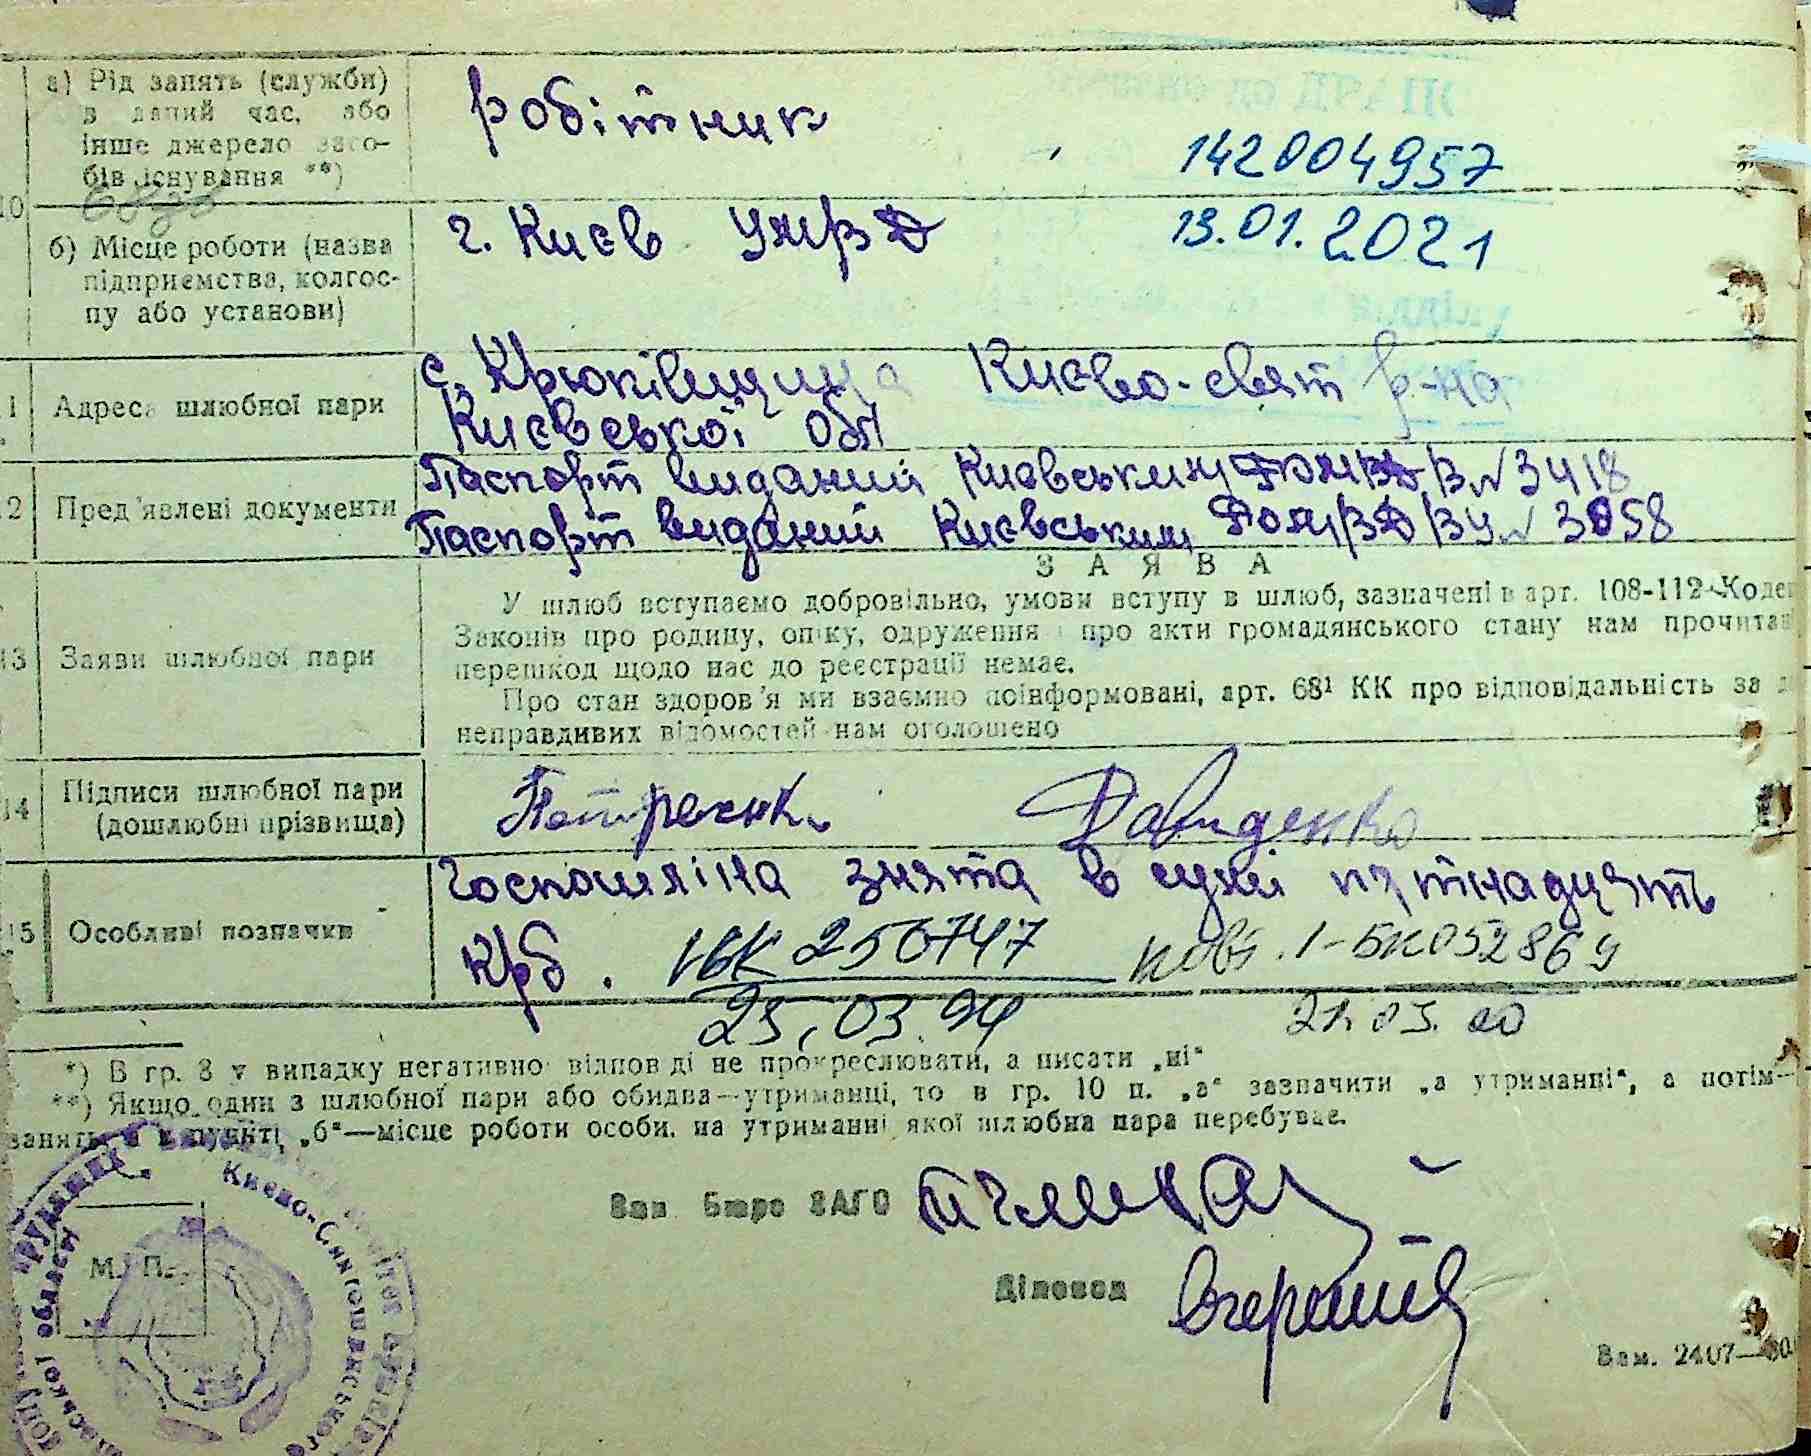 а) Рід занять (служби)
в даний час, або
інше джерело засо-
бів існування **)
робітник
142004957
10
б) Місце роботи (назва
підприємства, колгос-
пу або установи)
г. Києв
13.01.2021
11 Адреса шлюбної пари
с. Крюківщина Києво-свят р-на
Київської обл
12 Пред'явлені документи
Паспорт виданий Києвським № 3418
Паспорт виданий Києвським № 3058
ЗАЯВА
13 Заяви шлюбної пари
У шлюб вступаємо добровільно, умови вступу в шлюб, зазначені в арт. 108-112 Кодек
Законів про родину, опіку, одруження і про акти громадянського стану нам прочитан
перешкод щодо нас до реєстрації немає.
Про стан здоров'я ми взаємно поінформовані, арт. 68¹ КК про відповідальність за д
неправдивих відомостей нам оголошено
14 Підписи шлюбної пари
(дошлюбні прізвища)
Петренко Давиденко
15 Особливі позначки
Госпошліна знята в сумі пятнадцять
крб. 250747 повт. І-БК052869
23.03.94 21.03.00
*) В гр. 8 у випадку негативно відпов ді не прокреслювати, а писати „ні"
**) Якщо один з шлюбної пари або обидва—утриманці, то в гр. 10 п. „а" зазначити „а утриманні", а потім—
занять, а в пункті „б"—місце роботи особи, на утриманні якої шлюбна пара перебуває.
Зав. Бюро ЗАГС
М. П.
Києво-Святошинського
області
трудящих
Діловод
Зам. 2407—